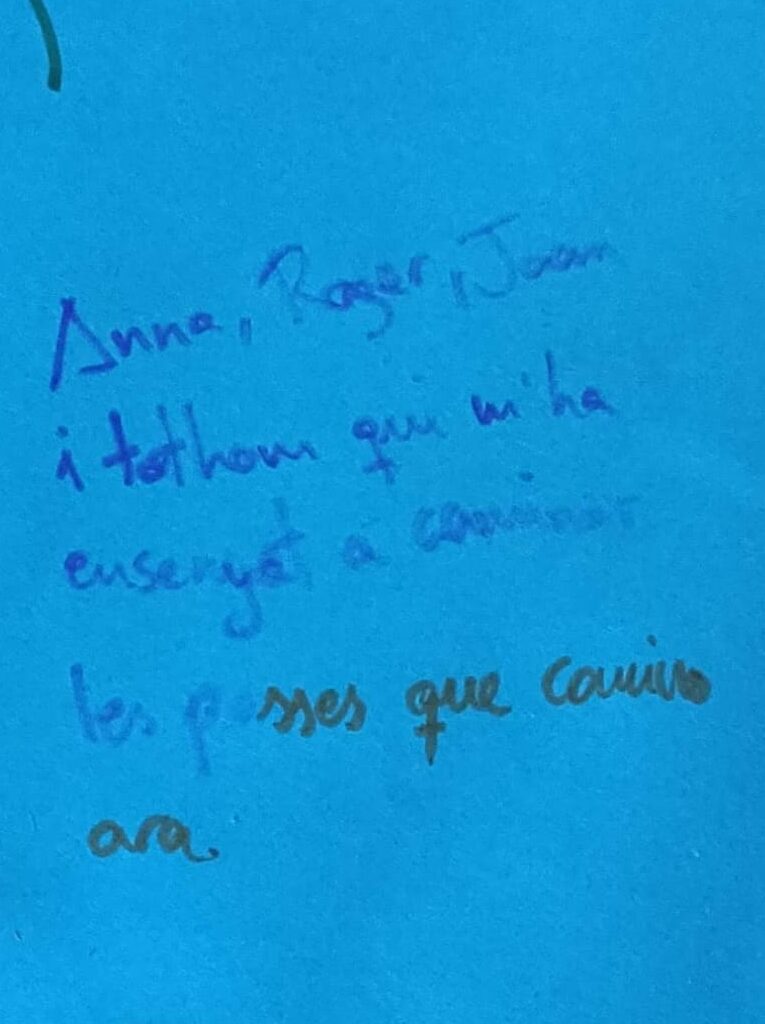 Anna, Roger, Joan
i tothom qui m'ha
ensenyat a caminar
les passes que camino
ara.